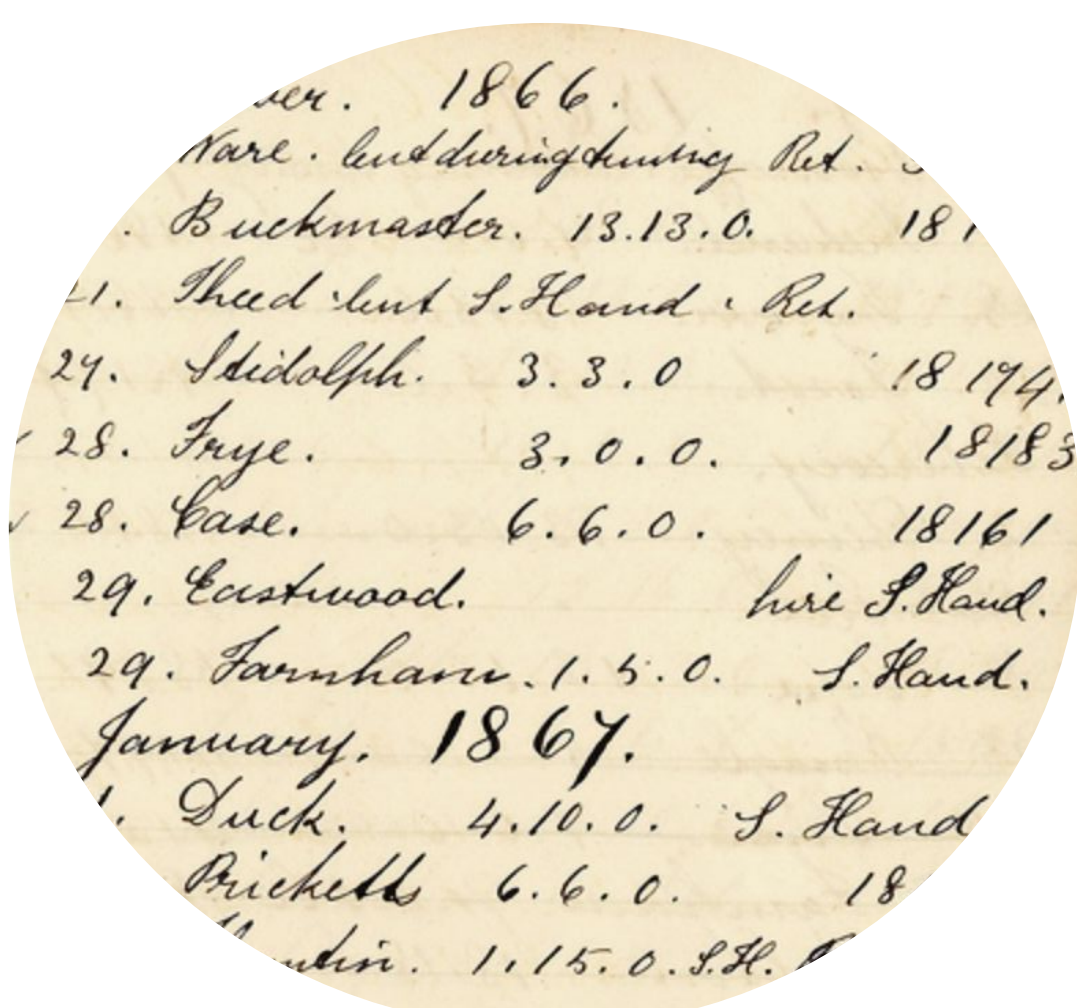 ber. 1866.
Ware. lent during tuning Ret.
. Buckmaster. 13.13.0. 181
21. Theed lent S. Hand. Ret.
24. Stidolph. 3.3.0 18174.
28. Frye. 3.0.0. 18183
28. Case. 6.6.0. 18161
29. Eastwood. hire S. Hand.
29. Farnham. 1.5.0. S. Hand.
January. 1867.
1. Duck. 4.10.0. S. Hand
Pricketts 6.6.0. 18
1.15.0. S.H.